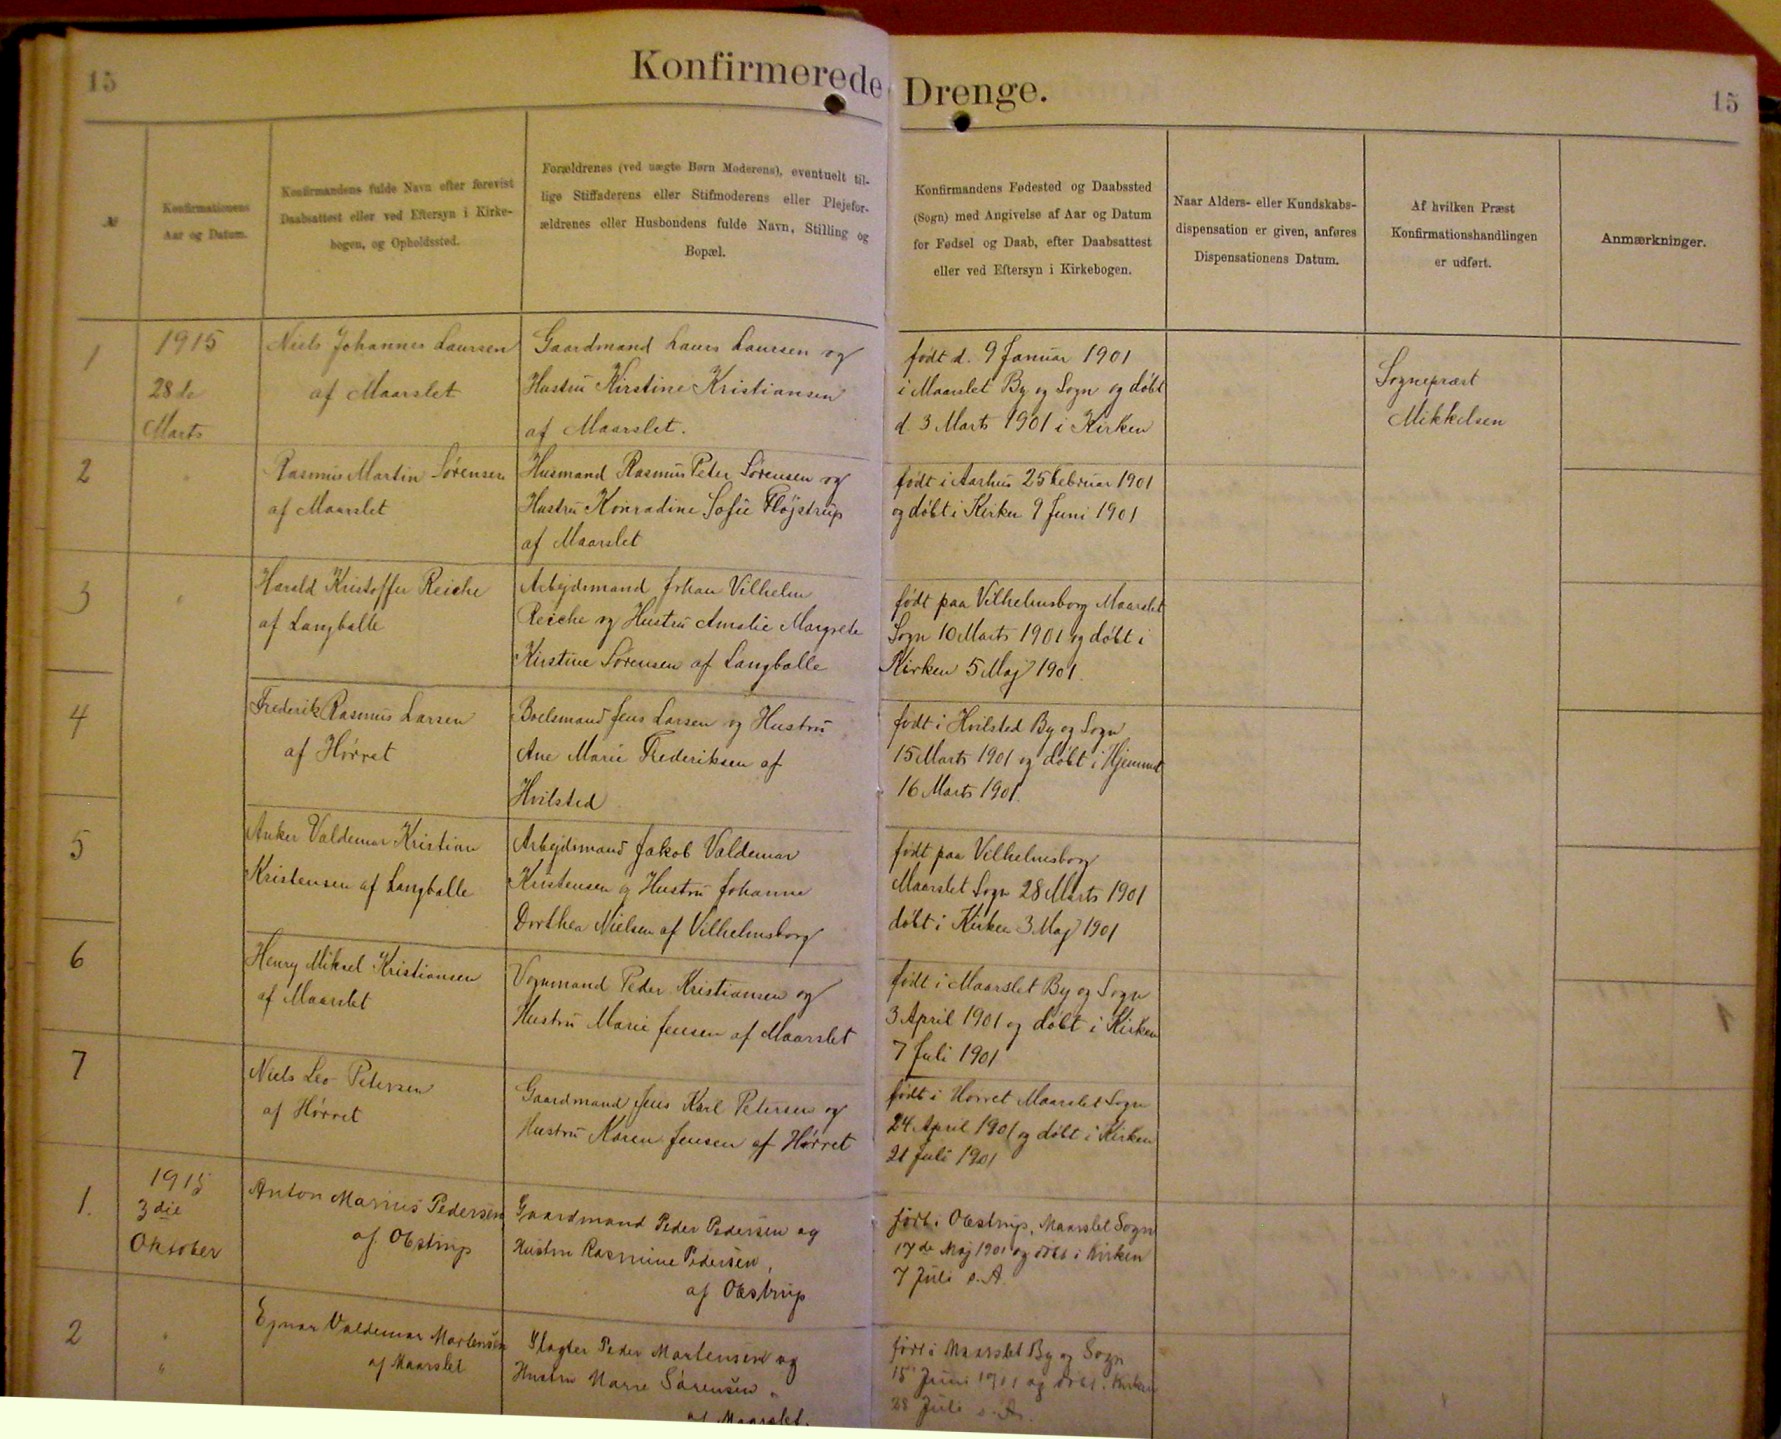 15
Konfirmerede Drenge.
15
№
Konfirmationens
Aar og Datum.
Konfirmandens fulde Navn efter forevist
Daabsattest eller ved Eftersyn i Kirke-
bogen, og Opholdssted.
Forældrenes (ved uægte Børn Moderens), eventuelt til-
lige Stiffaderens eller Stifmoderens eller Plejefor-
ældrenes eller Husbondens fulde Navn, Stilling og
Bopæl.
Konfirmandens Fødested og Daabssted
(Sogn) med Angivelse af Aar og Datum
for Fødsel og Daab, efter Daabsattest
eller ved Eftersyn i Kirkebogen.
Naar Alders- eller Kundskabs-
dispensation er given, anføres
Dispensationens Datum.
Af hvilken Præst
Konfirmationshandlingen
er udført.
Anmærkninger.
1
1915
28de
Marts
Niels Johannes Laursen
af Maarslet
Gaardmand Laurs Laursen og
Hustru Kirstine Kristiansen
af Maarslet.
født d. 9 Januar 1901
i Maarslet By og Sogn og døbt
d. 3 Marts 1901 i Kirken
Sognepræst
Mikkelsen
2
"
Rasmus Martin Sørensen
af Maarslet
Husmand Rasmus Peter Sørensen og
Hustru Konradine Sofie Fløjstrup
af Maarslet
født i Aarhus 25 Februar 1901
og døbt i Kirken 9 Juni 1901
3
"
Harald Kristoffer Reiche
af Langballe
Arbejdsmand Johan Vilhelm
Reiche og Hustru Amalie Margrete
Kirstine Sørensen af Langballe
født paa Vilhelmsborg Maarslet
Sogn 10 Marts 1901 og døbt i
Kirken 5 Maj 1901.
4
Frederik Rasmus Larsen
af Hørret
Boelsmand Jens Larsen og Hustru
Ane Marie Frederiksen af
Hvilsted
født i Hvilsted By og Sogn
15 Marts 1901 og døbt i Hjemmet
16 Marts 1901.
5
Anker Valdemar Kristian
Kristensen af Langballe
Arbejdsmand Jakob Valdemar
Kristensen og Hustru Johanne
Dorthea Nielsen af Vilhelmsborg
født paa Vilhelmsborg
Maarslet Sogn 28 Marts 1901
døbt i Kirken 3 Maj 1901
6
Henry Mikael Kristiansen
af Maarslet
Vognmand Peder Kristiansen og
Hustru Marie Jensen af Maarslet
født i Maarslet By og Sogn
3 April 1901 og døbt i Kirken
7 Juli 1901
7
Niels Leo Petersen
af Hørret
Gaardmand Jens Karl Petersen og
Hustru Karen Jensen af Hørret
født i Hørret Maarslet Sogn
24 April 1901 og døbt i Kirken
21 Juli 1901
1.
1915
3die
Oktober
Anton Marius Pedersen
af Obstrup
Gaardmand Peder Pedersen og
Hustru Rasmine Pedersen,
af Obstrup
født i Obstrup, Maarslet Sogn
17de Maj 1901 og døbt i Kirken
7 Juli s. A.
2
"
"
Ejnar Valdemar Mortensen
af Maarslet
Slagter Peder Mortensen og
Hustru Marie Sørensen
af Maarslet.
født i Maarslet By og Sogn
15 Juni 1901 og døbt i Kirken
28 Juli s. A.